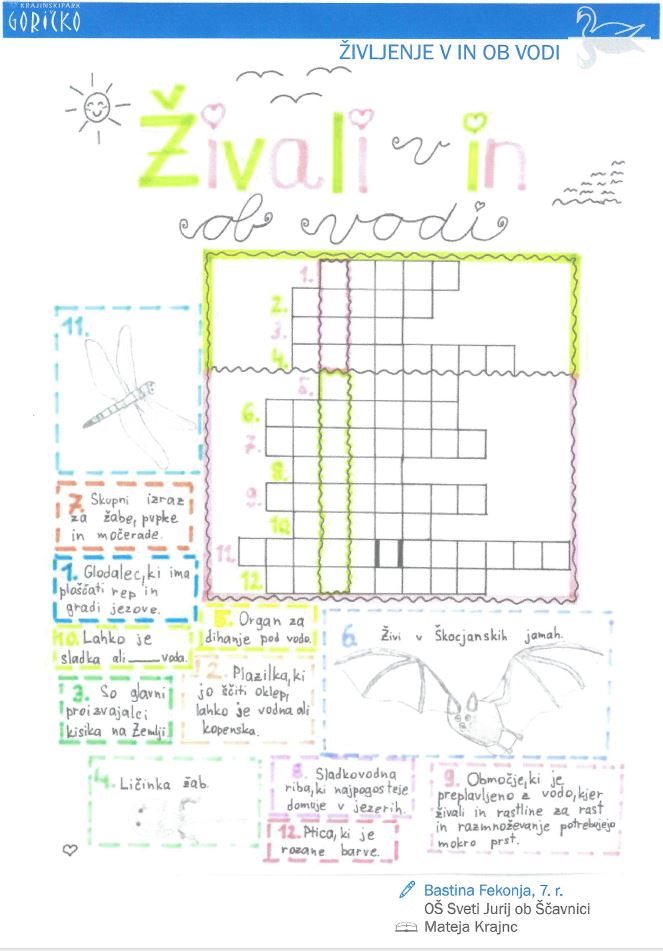 KRAJINSKI PARK
GORIČKO
ŽIVLJENJE V IN OB VODI
Živali v in
ob vodi
1.
2.
3.
4.
5.
6.
7.
8.
9.
10.
11.
12.
11.
7. Skupni izraz
za žabe, pupke
in močerade.
1. Glodalec, ki ima
ploščati rep in
gradi jezove.
10. Lahko je
sladka ali ____ voda.
3. So glavni
proizvajalci
kisika na Zemlji
5. Organ za
dihanje pod vodo.
2. Plazilka, ki
jo ščiti oklep,
lahko je vodna ali
kopenska.
6. Živi v Škocjanskih jamah.
4. Ličinka žab.
8. Sladkovodna
riba, ki najpogosteje
domuje v jezerih.
12. Ptica, ki je
rozane barve.
9. Območje, ki je
preplavljeno z vodo, kjer
živali in rastline za rast
in razmnoževanje potrebujejo
mokro prst.
Bastina Fekonja, 7. r.
OŠ Sveti Jurij ob Ščavnici
Mateja Krajnc